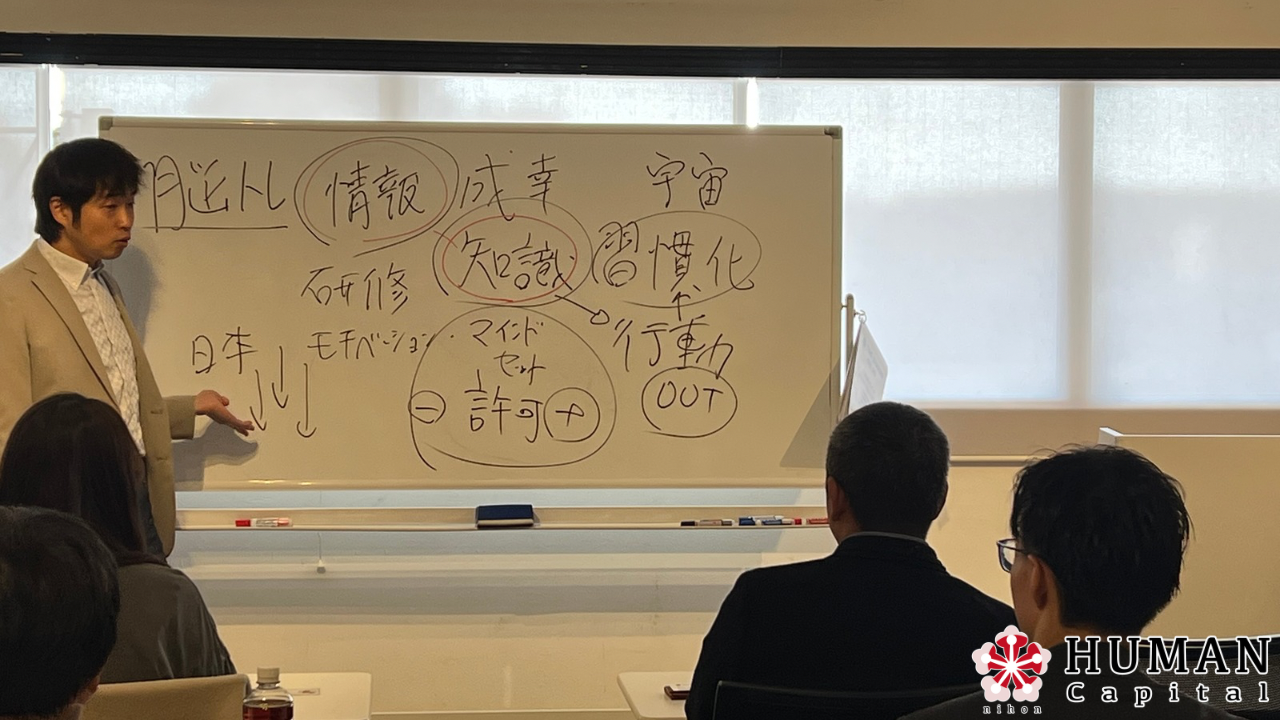 脳トレ 情報 成幸 宇宙
研修 知識 習慣化
日本 モチベーション マインド
セット 行動
- 許可 + OUT
HUMAN
Capital
nihon